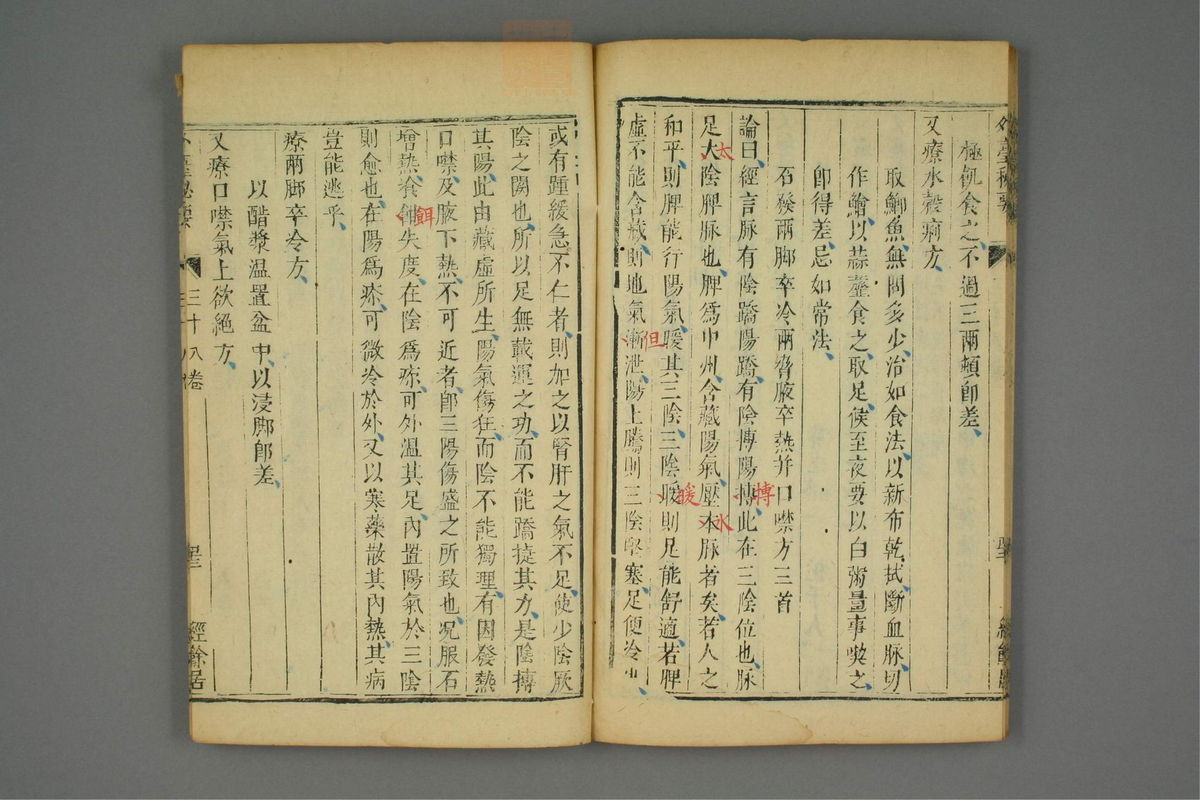 外臺秘要
極飢食之不過三兩頓卽差
又療水穀痢方
取鯽魚無問多少治如食法以新布乾拭斷血脉切
作鱠以蒜虀食之取足候至夜要以白粥量事喫之
卽得差忌如常法
石發兩脚卒冷兩脅腋卒熱并口噤方三首
論曰經言脉有陰蹻陽蹻有陰摶陽摶此在三陰位也脉
摶
足大陰脾脉也脾爲中州含藏陽氣壓本脉者矣若人之
太
水
和平則脾能行陽氣暖其三陰三陰暖則足能舒適若脾
煖
虛不能含藏則地氣漸泄陽上騰則三陰堅塞足便冷也
但
或有踵緩急不仁者則加之以腎肝之氣不足使少陰厥
陰之關也所以足無戴運之功而不能蹻捷其力是陰摶
其陽此由藏虛所生陽氣傷在而陰不能獨理有因發熱
口噤及腋下熱不可近者卽三陽傷盛之所致也况服石
增熱飡失度在陰爲痹可外溫其足內置陽氣於三陰
餌
則愈也在陽爲痹可微冷於外又以寒藥散其內熱其病
豈能逃乎
療兩脚卒冷方
以醋漿温置盆中以浸脚卽差
又療口噤氣上欲絕方
外臺秘要
三十八卷
經餘居